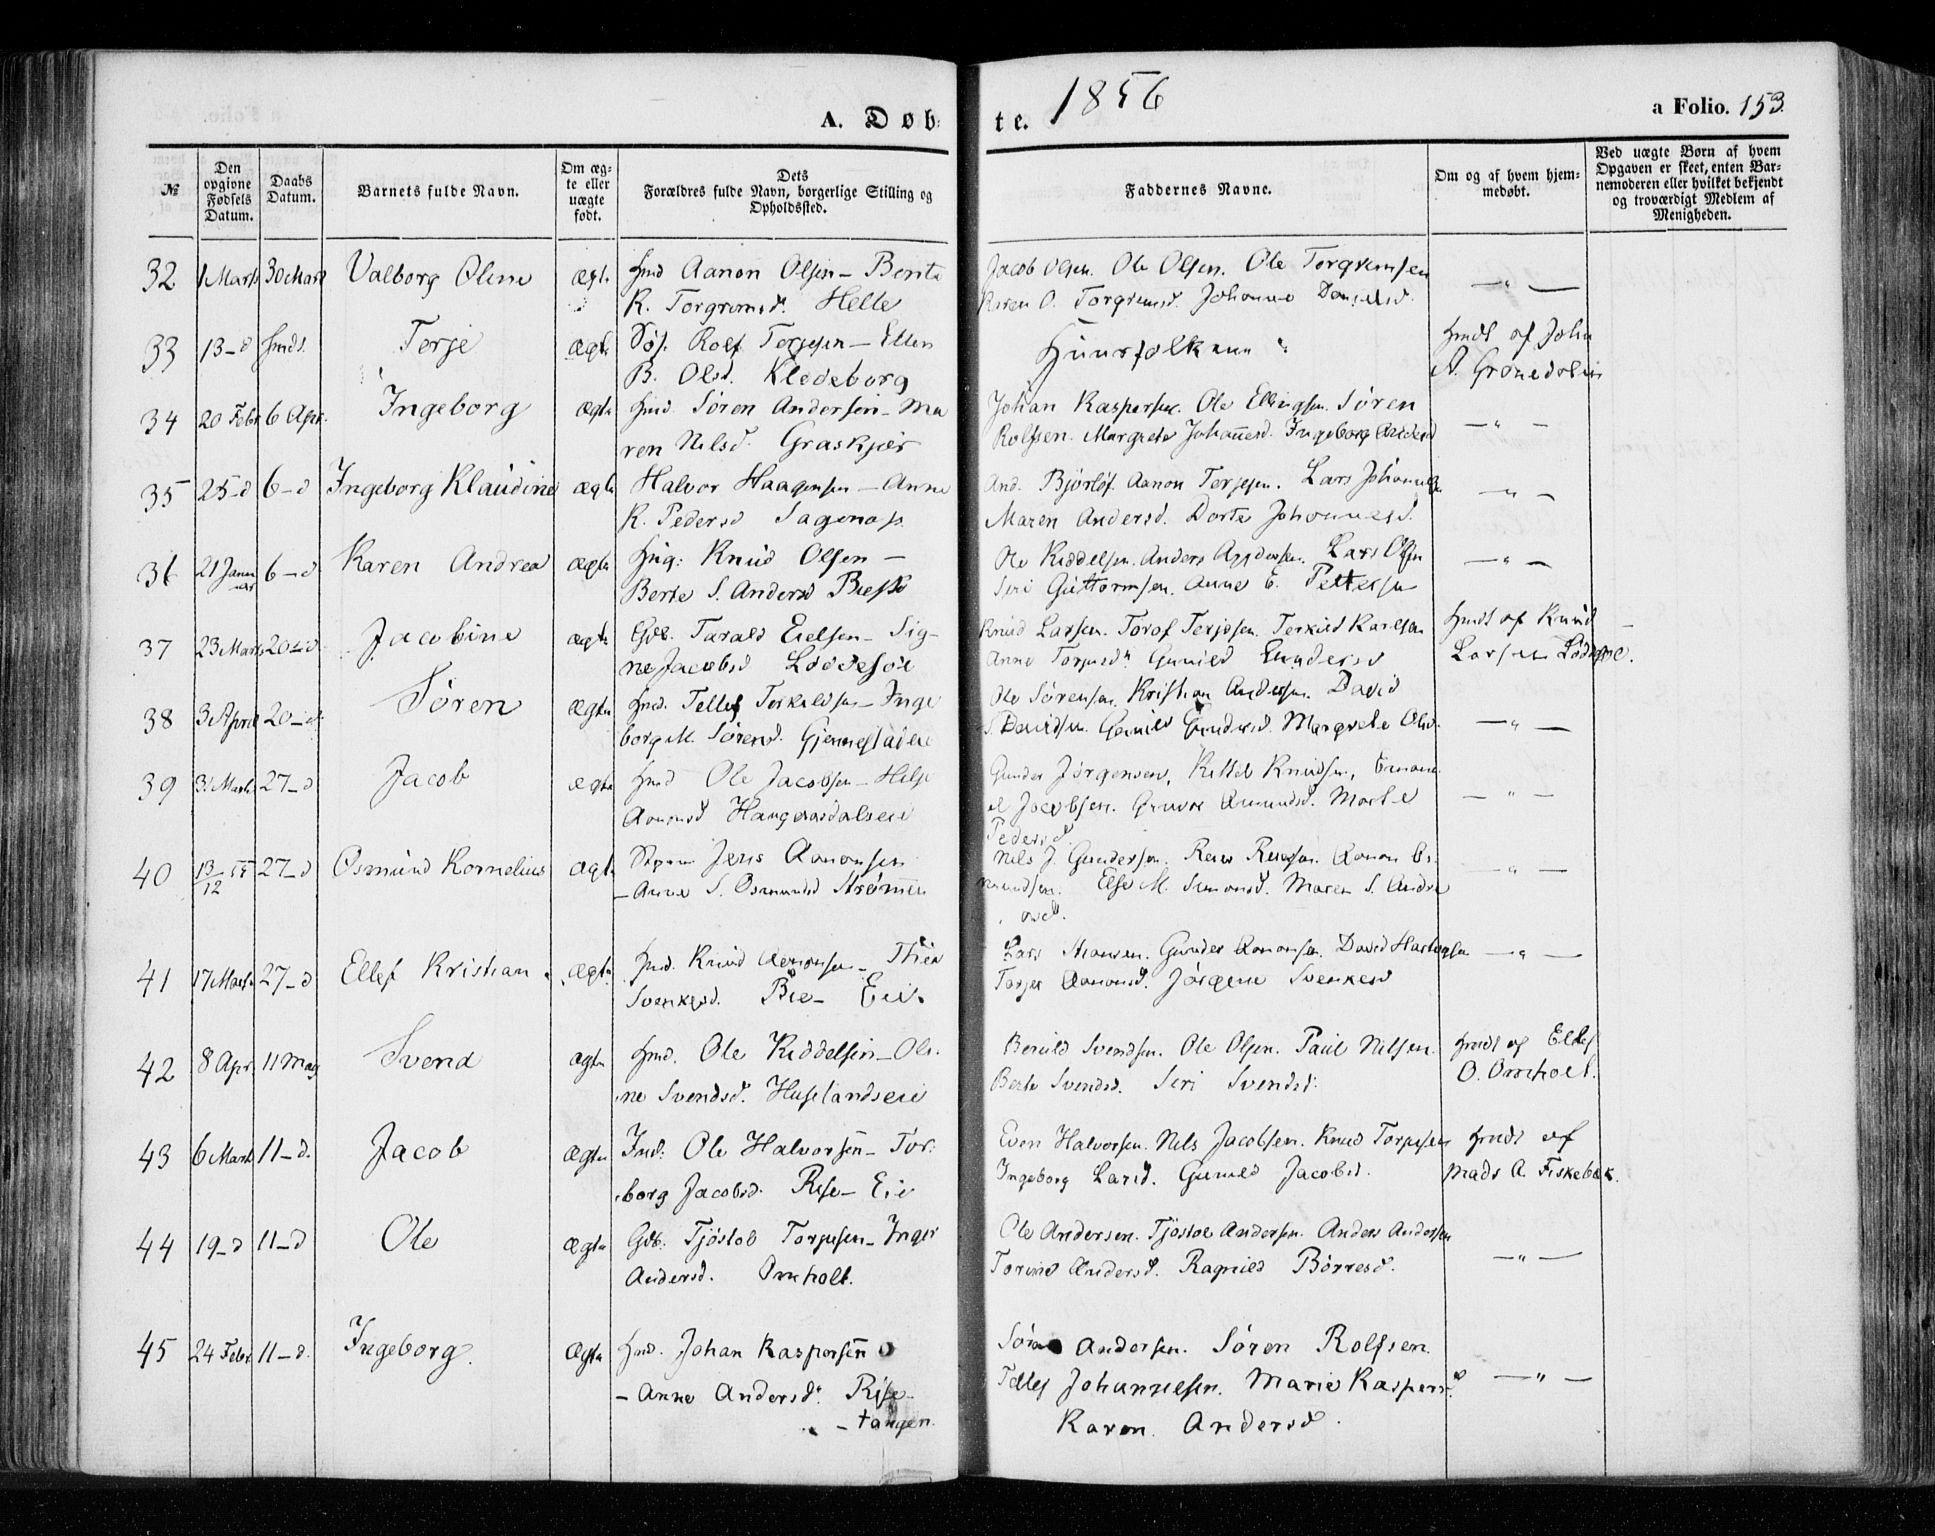 A. Døb-
te. 1856
a Folio. 153.
№
Den opgivne Fødsels Datum.
Daabs Datum.
Barnets fulde Navn.
Om ægte eller uægte født.
Dets Forældres fulde Navn, borgerlige Stilling og Opholdssted.
Faddernes Navne.
Om og af hvem hjemmedøbt.
Ved uægte Børn af hvem Opgaven er skeet, enten Barnemoderen eller hvilket bekjendt og troværdigt Medlem af Menigheden.
32 1 Marts 30 Mart Valborg Oline ægte Hmd Aanon Olsen – Berte Jacob Olsen. Ole Olsen. Ole Torgremsen —"—
K. Torgremsd. Helle Karen O. Torgremsd. Johanne Danielsd.
33 13–d hmds. Terje ægte Søf. Rolf Terjesen – Ellen Huusfolkene hmdt af John
B. Olsd. Kledeborg A.
34 20 Febr 6 Apr. Ingeborg ægte Hmd. Søren Andersen – Ma Johan Kaspersen. Ole Ellingsen. Søren —"—
ren Nilsd. Graskjær Rolfsen. Margrete Johannesd. Ingeborg Andersd
35 25–d 6–d Ingeborg Klaudine ægte Halvor Haagensen – Anne And. Bjørløf. Aanon Terjesen. Lars —"—
K. Pedersd Sagenæs Maren Andersd. Dorte Johannesd.
36 21 Januar 6–d Karen Andrea ægte Knud Olsen – Ole Kiddelsen. Anders Lars Olsen —"—
Berte S. Andersd Seri Guttormsen. Anne E. Pettersen
37 23 Marts 20–d Jacobine ægte Gdb. Tarald Eielsen – Sig- Knud Larsen. Torof Terjesen. Terkild Karlsen hmdt af Knud
ne Jacobsd Løddesøl Anne Torjusd. Gunild Gundersd Larsen
38 3 April 20–d Søren ægte Hmd. Tellef Terkeldsen – Inge Ole Sørensen. Kristian Andersen. David
borg M. Sørensd. Gjennestadeie S. Davidsen. Gunild Gundersd. Margrete Olsd. —"—
39 3 Marts 27–d Jacob ægte Hmd Ole Jacobsen – Helje Gunder Jørgensen, Kittel Knudsen,
Aanonsd el Jacobsen. Amundsd. Marte —"—
Pedersd
40 13/12 55 27–d Osmund Kornelius ægte Jens Aanonsen Nils J. Gundersen. Aanon Os- —"—
– Anne S. Osmundsd Strømmen mundsen. Else M. Simonsd. Maren S. Andre
asd.
41 17 Marts 27–d Ellef Kristian ægte Hmd. Knud Aanonsen – Thea Lars Hansen. Gunder Aanonsen. David —"—
Svenkesd. Bie – Eie Torjer Aanonsd. Jørgene Svenkesd
42 8 Apr. 11 May Svend ægte Hmd. Ole Kiddelsen – Oli- Beruld Svendsen. Ole Olsen. Paul Nilsen. hmdt af Ellef
ne Svendsd. Huslandseie Berte Svendsd. Seri Svendsd. O. Omholt.
43 6 Mart 11–d. Jacob ægte Ind: Ole Halvorsen – Tor- Even Halvorsen. Nils Jacobsen. Knud Torjusen hmdt af
borg Jacobsd. Rise – Eie Ingeborg Larsd. Gunild Jacobsd. Mads A. Fiskebæk.
44 19–d 11–d Ole ægte Gdb: Tjøstol Torjusen – Inger Ole Andersen. Tjøstol Andersen. Anders Andersen
Andersd. Omholt. Torine Andersd. Ragnild Børresd. —"—
45 24 Febr 11–d. Ingeborg. ægte Hmd. Johan Kaspersen Søren Andersen. Søren Rolfsen.
– Anne Andersd. Rise- Tellef Johannesen. Marie Kaspersd. —"—
– tangen. Karen Andersd.